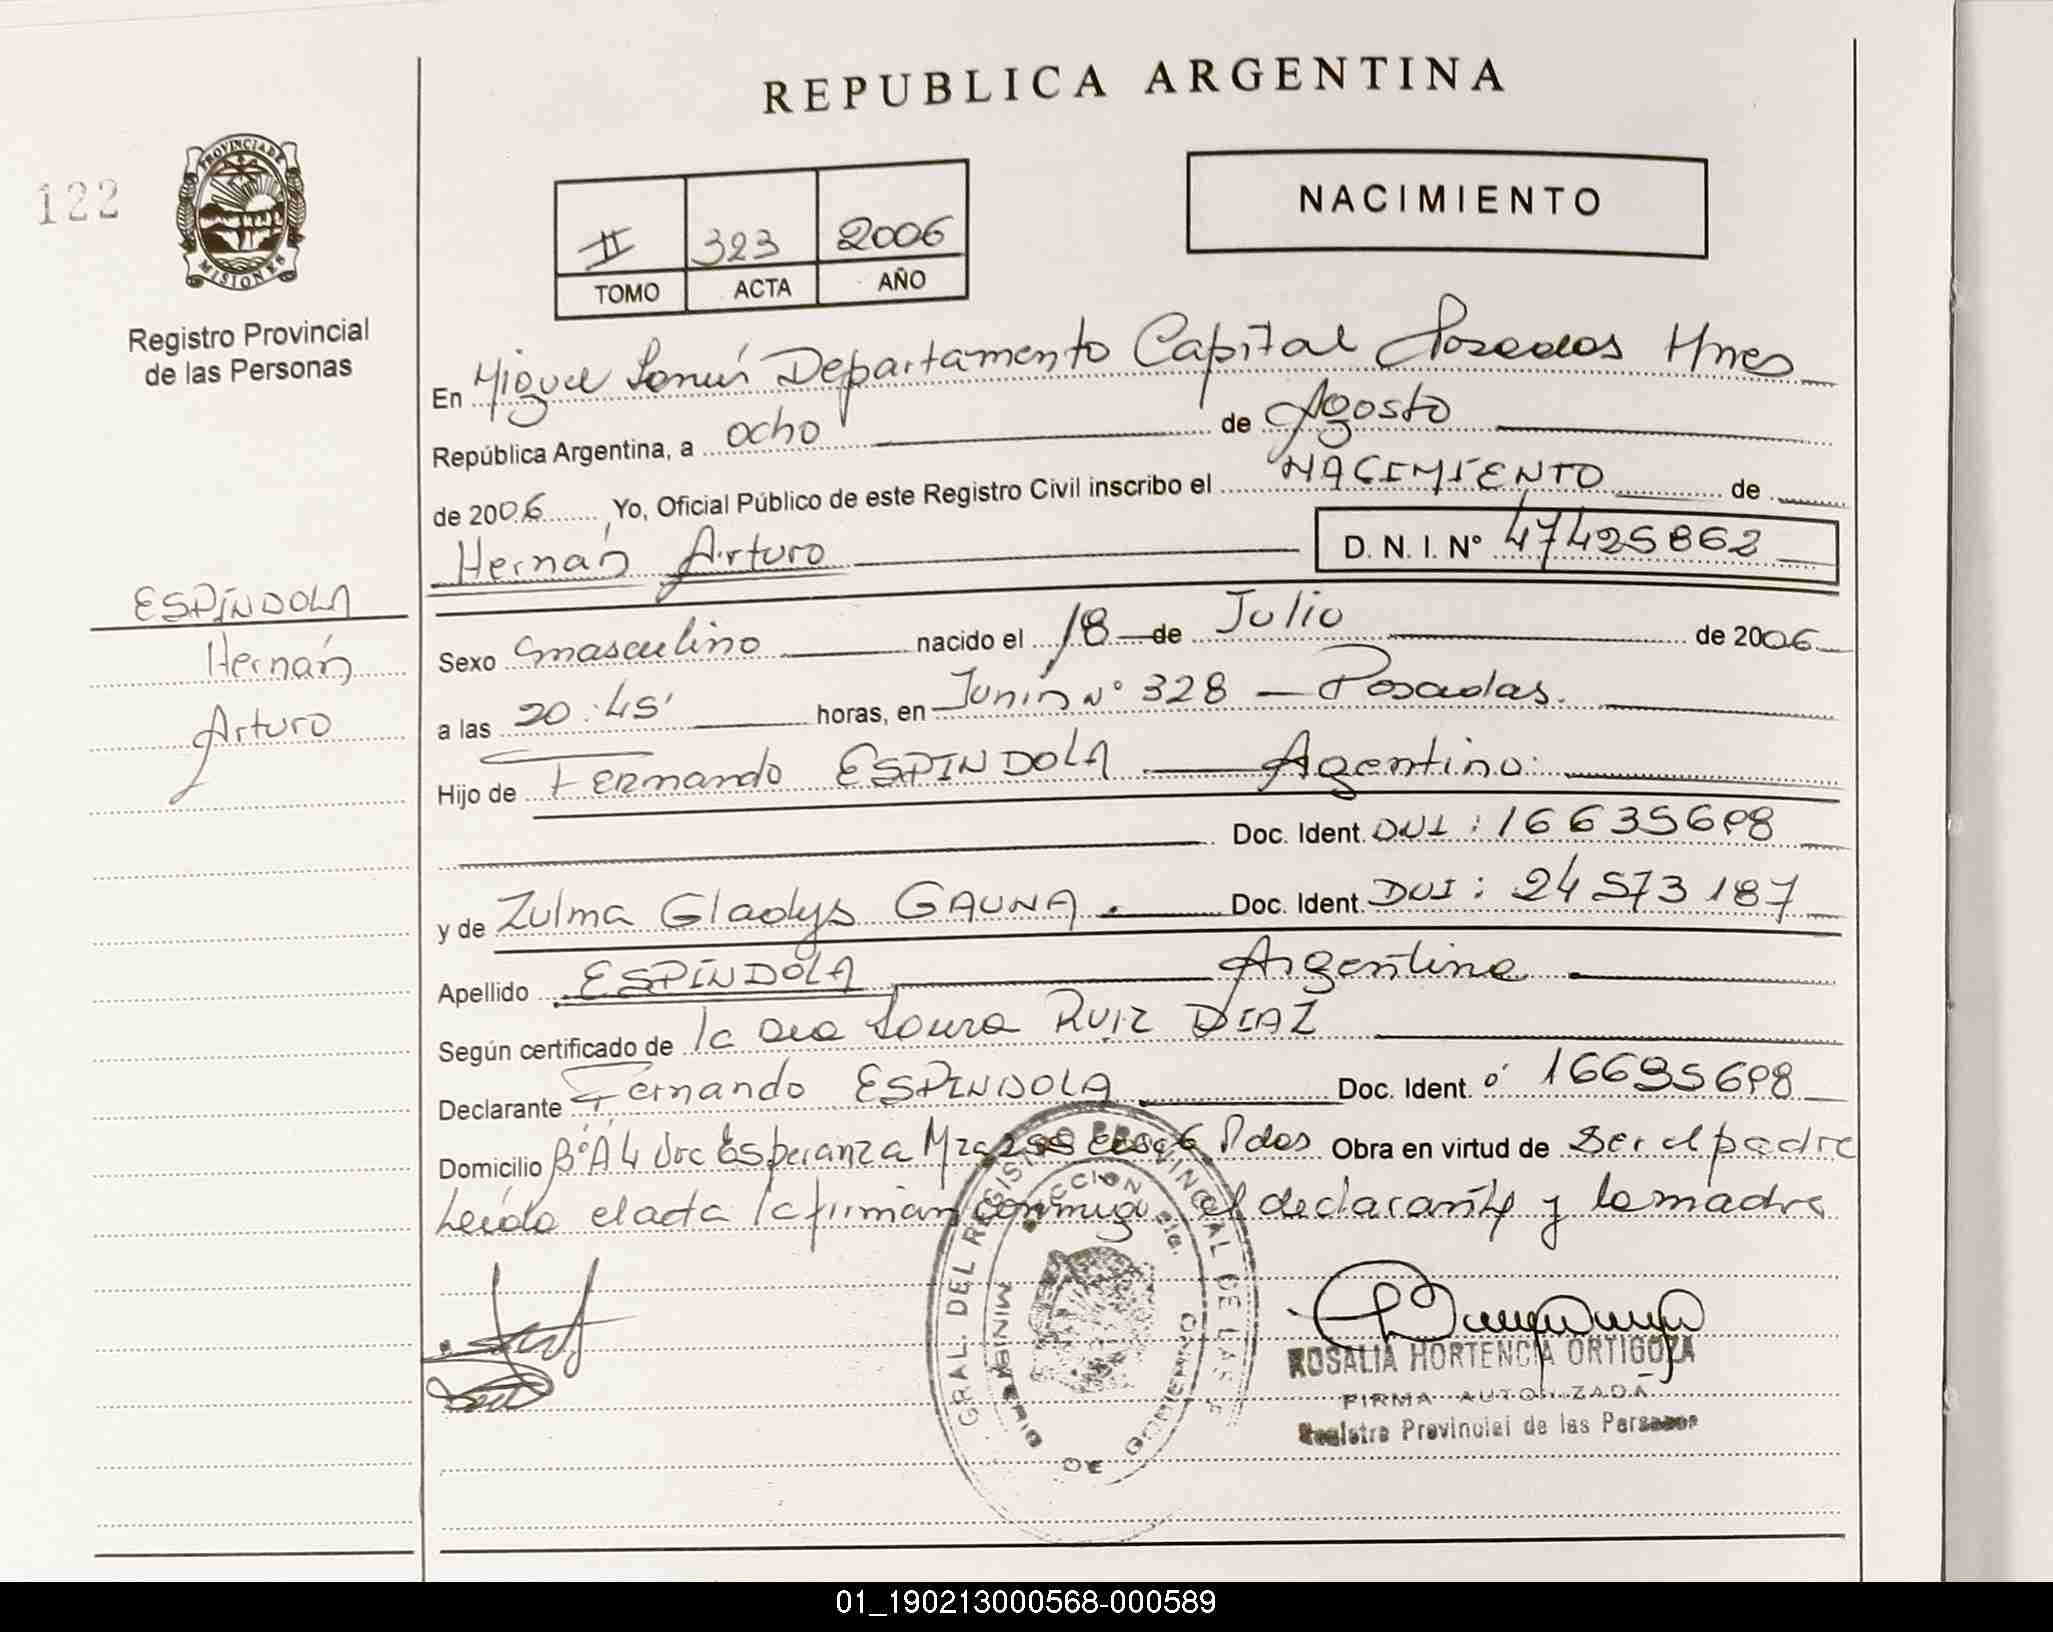 REPUBLICA ARGENTINA
122
PROVINCIA DE
MISIONES
Registro Provincial
de las Personas
II 323 2006
TOMO ACTA AÑO
NACIMIENTO
En Miguel Departamento Capital Posadas Mnes
República Argentina, a ocho de Agosto
de 2006 Yo, Oficial Público de este Registro Civil inscribo el NACIMIENTO de
Hernán Arturo D. N. I. Nº 47425862
ESPÍNDOLA
Hernán
Arturo
Sexo masculino nacido el 18 de Julio de 2006
a las 20:45' horas, en Junín Nº 328 — Posadas.
Hijo de Fernando ESPINDOLA — Agentino
Doc. Ident. DNI: 16635698
y de Zulma Gladys GAUNA. Doc. Ident. DNI: 24573187
Apellido ESPÍNDOLA Argentina
Según certificado de la Dra Laura RUIZ DIAZ
Declarante Fernando ESPINDOLA Doc. Ident. 16635698
Domicilio Bº A4 Esperanza Mza casa 6 Pdas Obra en virtud de ser el padre
Leída el acta la firman conmigo el declarante y la madre
GRAL. DEL REGISTRO PROVINCIAL DE LAS P
MINISTERIO DE GOBIERNO
ROSALIA HORTENCIA ORTIGOZA
FIRMA AUTORIZADA
Registro Provincial de las Personas
01_190213000568-000589